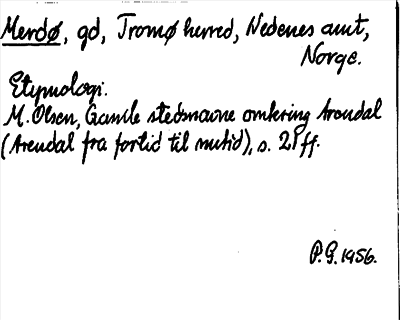 Merdø, gd, Tromø herred, Nedenes amt,
Norge.
Etymologi.
M. Olsen, Gamle stedsnavne omkring Arendal
(Arendal fra fortid til nutid), s. 21 ff.
P.G. 1956.